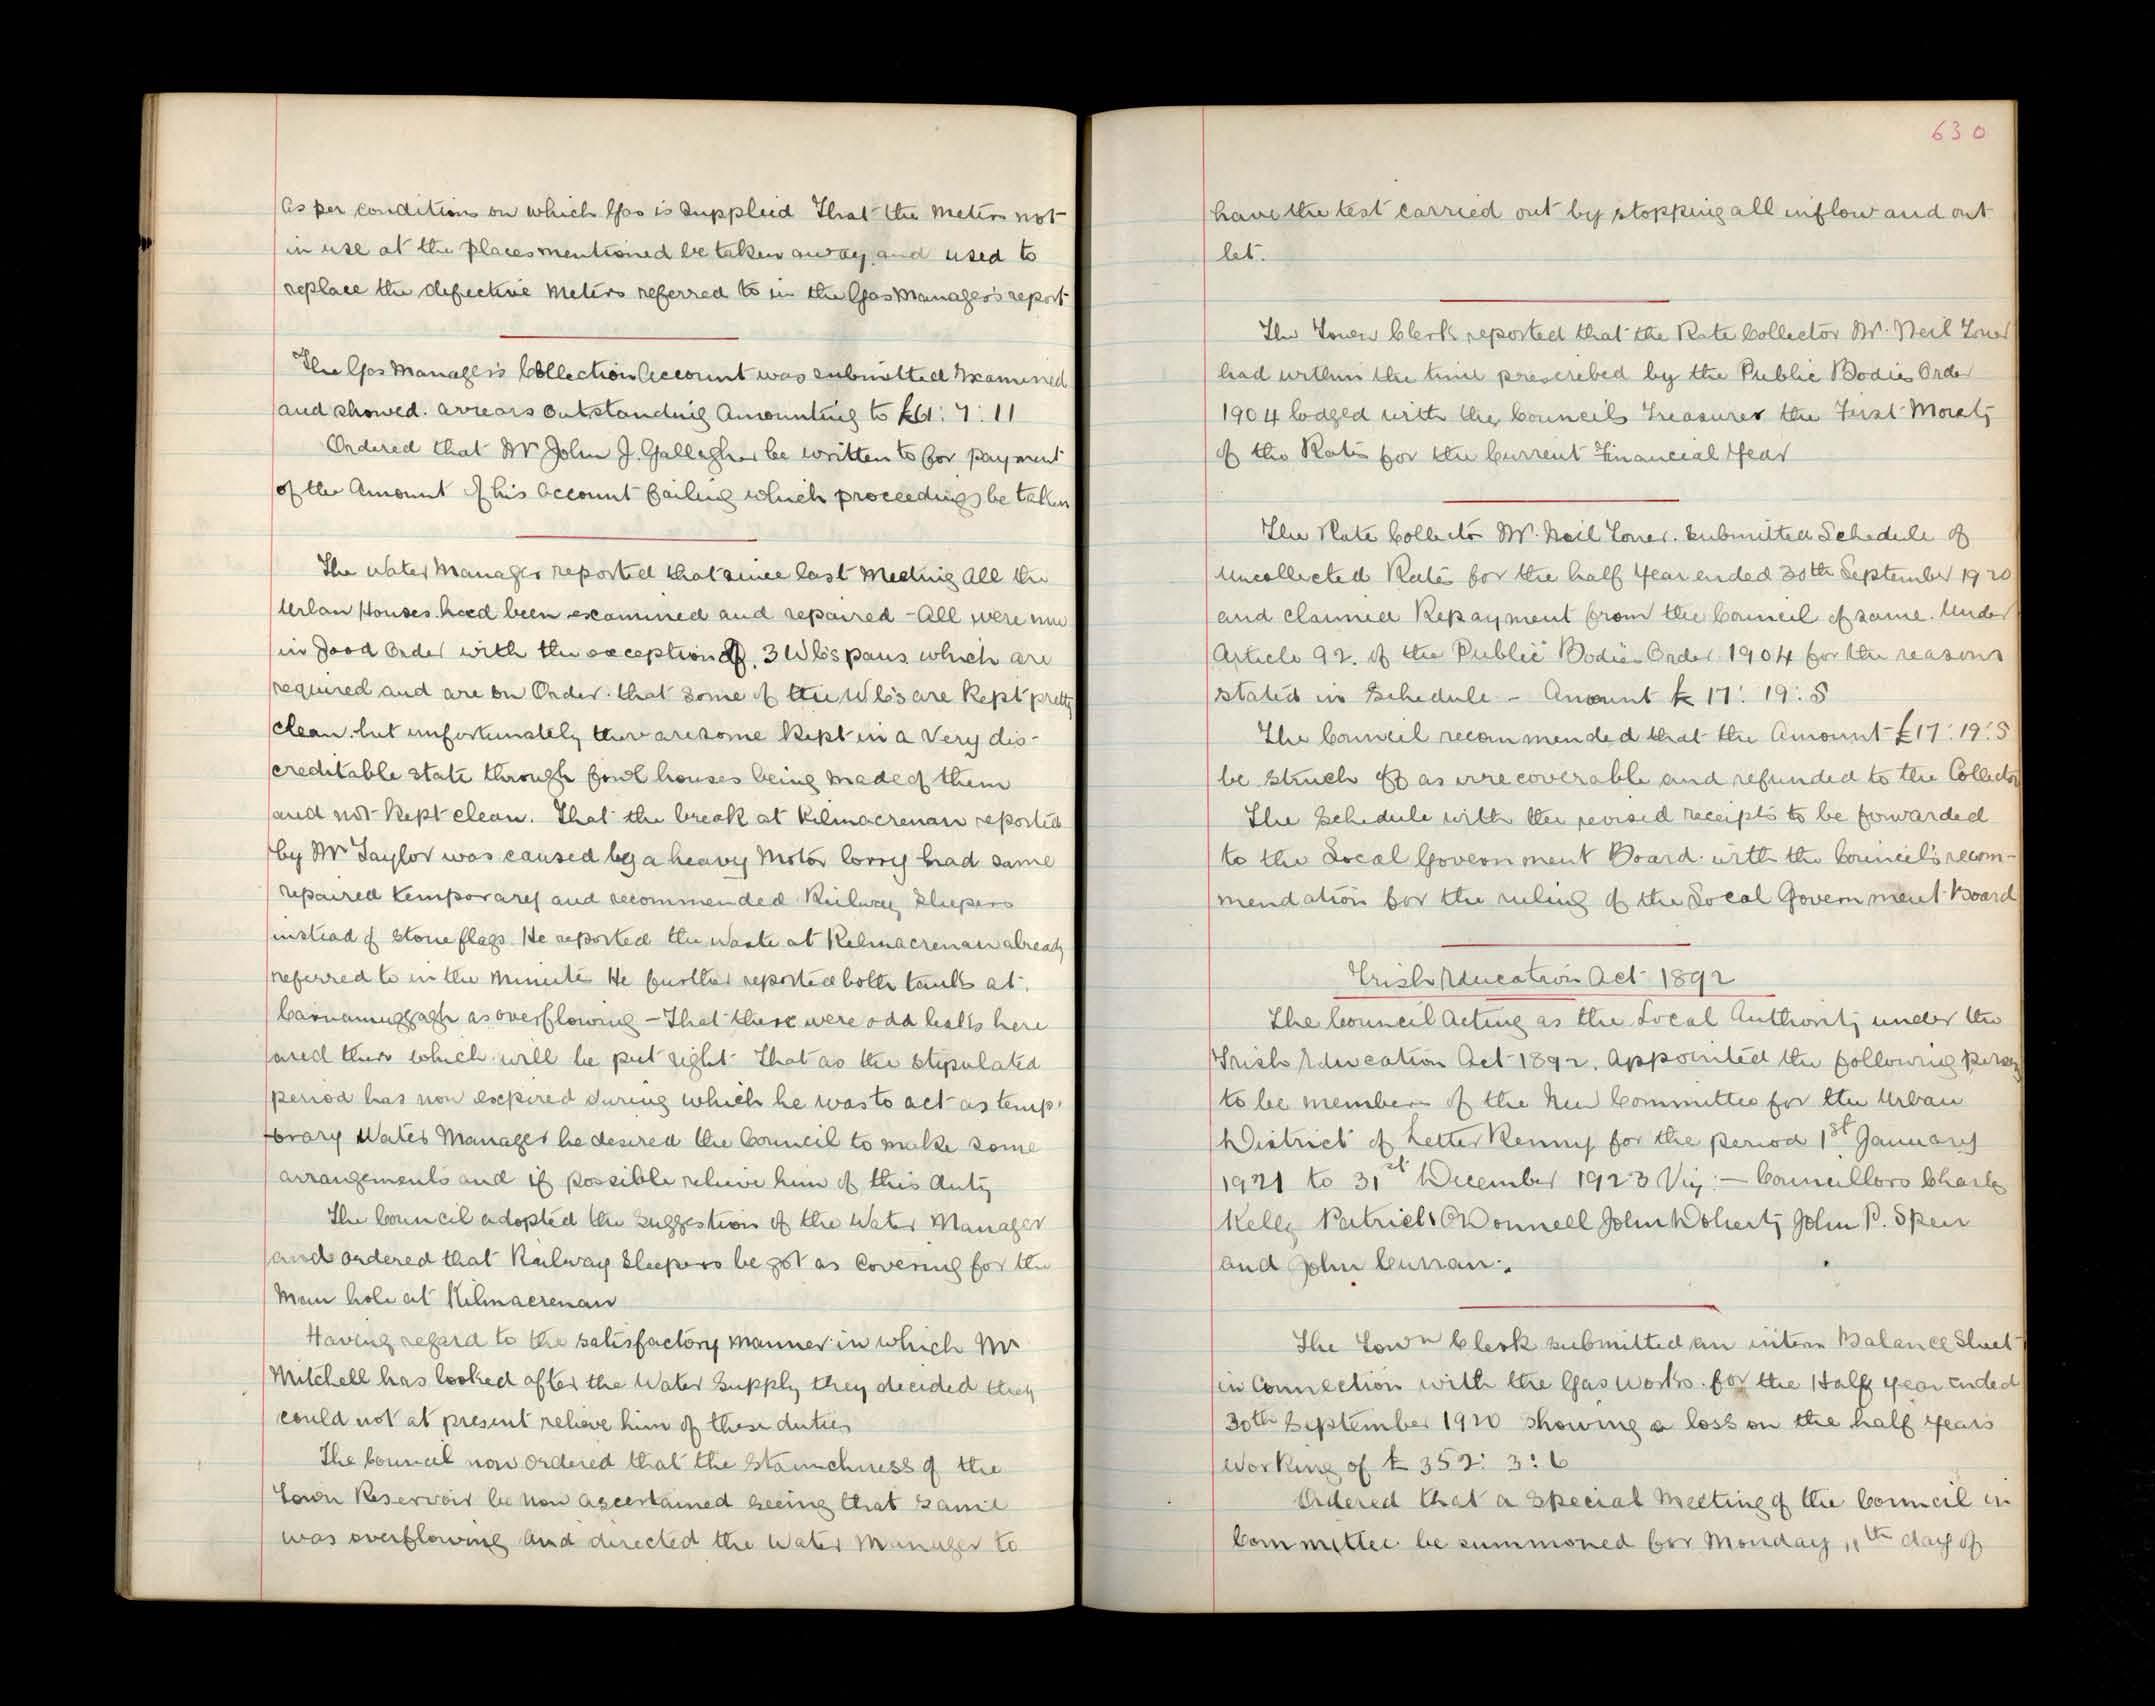 as per conditions on which Gas is supplied That the Meters not
in use at the places mentioned be taken away and used to
replace the defective Meters referred to in the Gas Manager's report
The Gas Manager's Collection Account was submitted Examined
and showed arrears outstanding amounting to £61: 7: 11
Ordered that Mr John J. Gallagher be written to for payment
of the amount of his account failing which proceedings be taken
The Water Manager reported that since last Meeting all the
Urban Houses had been examined and repaired - All were now
in good order with the exception of 3 W.C's pans which are
required and are on Order. that some of the W.C's are kept pretty
clean. but unfortunately there are some kept in a very dis-
creditable state through fowl houses being made of them
and not kept clean. That the break at Kilmacrenan reported
by Mr Taylor was caused by a heavy Motor lorry had same
repaired temporary and recommended Railway Sleepers
instead of stone flags. He reported the waste at Kilmacrenan already
referred to in the Minutes He further reported both tanks at
as overflowing - That there were odd leaks here
and there which will be put right That as the stipulated
period has now expired during which he was to act as temp-
orary Water Manager he desired the Council to make some
arrangements and if possible relieve him of this duty
The Council adopted the suggestion of the Water Manager
and ordered that Railway Sleepers be got as covering for the
Man hole at Kilmacrenan
Having regard to the satisfactory manner in which Mr
Mitchell has looked after the Water Supply they decided they
could not at present relieve him of these duties
The Council now ordered that the staunchness of the
Town Reservoir be now ascertained seeing that same
was overflowing and directed the Water Manager to
630
have the test carried out by stopping all inflow and out
let.
The Town Clerk reported that the Rate Collector Mr. Neil Toner
had within the time prescribed by the Public Bodies Order
1904 lodged with the Council's Treasurer the First Moiety
of the Rates for the Current Financial Year
The Rate Collector Mr. Neil Toner. submitted Schedule of
Uncollected Rates for the half Year ended 30th September 1920
and claimed Repayment from the Council of same. Under
Article 92. of the Public Bodies Order 1904 for the reasons
stated in Schedule - Amount £17: 19: 5
The Council recommended that the Amount £17: 19: 5
be struck off as irrecoverable and refunded to the Collector
The Schedule with the revised receipts to be forwarded
to the Local Government Board. with the Council's recom-
mendation for the ruling of the Local Government Board
Irish Education Act 1892
The Council Acting as the Local Authority under the
Irish Education Act 1892. appointed the following persons
to be members of the New Committee for the Urban
District of Letterkenny for the period 1st January
1921 to 31st December 1923 Viz: - Councillors Charles
Kelly Patrick O'Donnell John Doherty John P. Speer
and John Curran.
The Town Clerk submitted an interm Balance Sheet
in Connection with the Gas Works. for the Half year ended
30th September 1920 showing a loss on the half years
working of £352: 3: 6
Ordered that a special Meeting of the Council in
Committee be summoned for Monday 11th day of